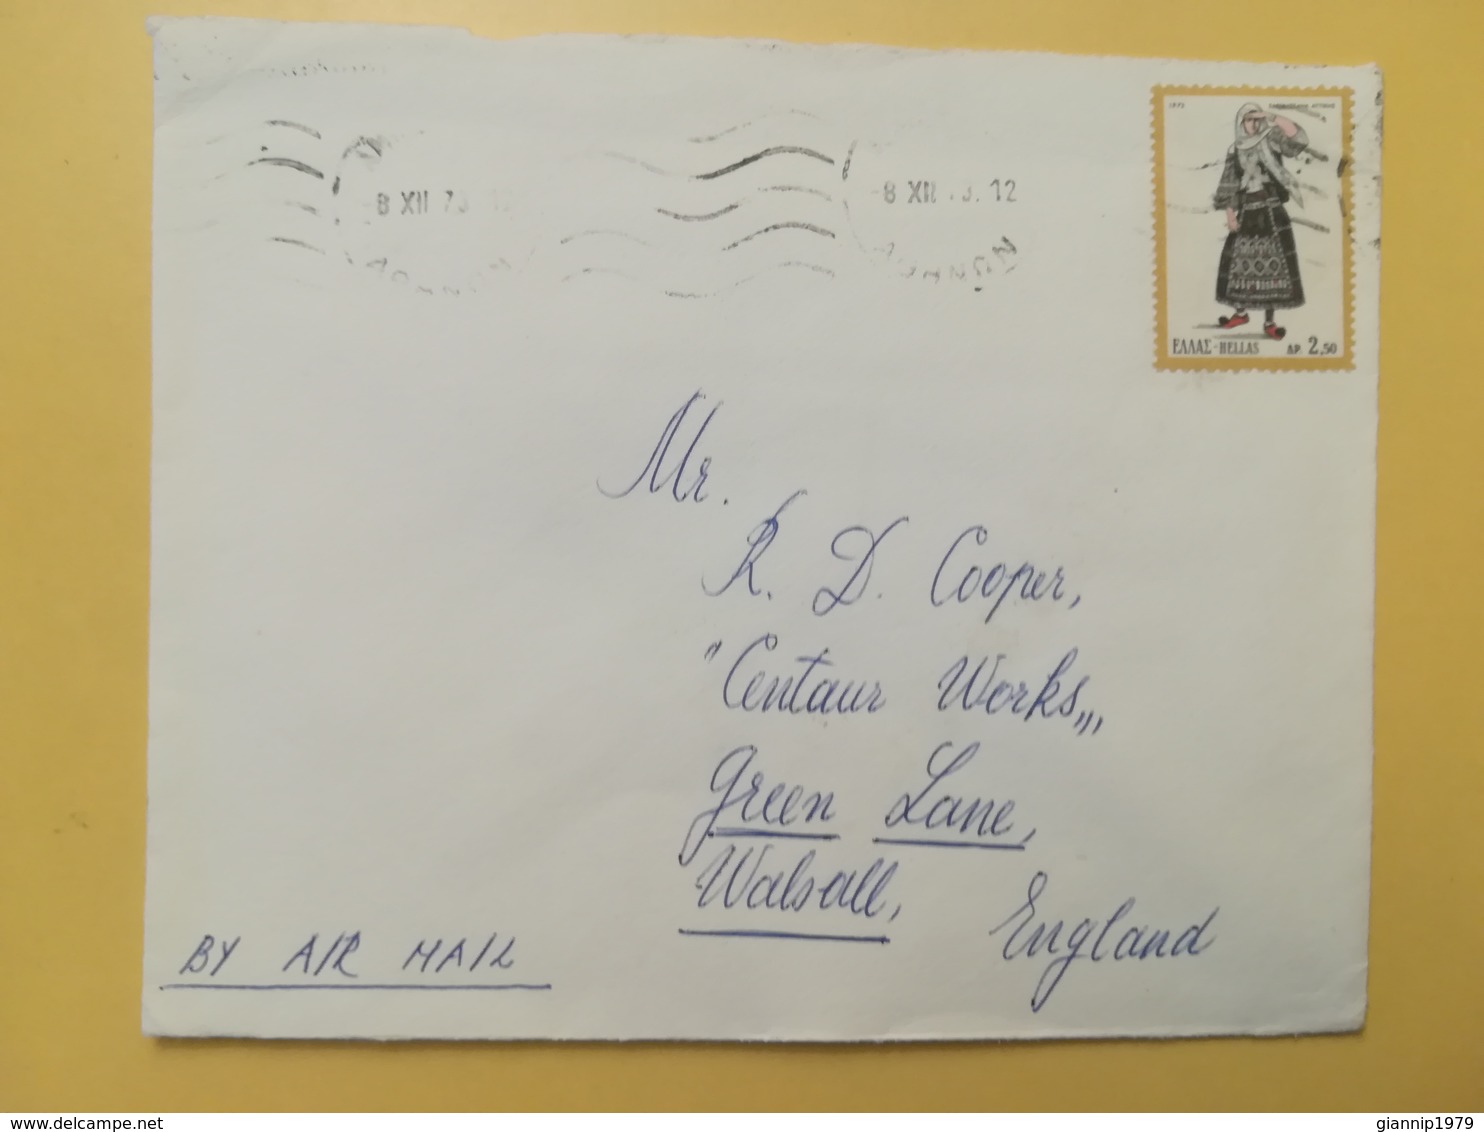 8 XII 73 12
8 XII 73. 12
1972
ΕΛΛΑΣ-HELLAS ΔΡ. 2,50
Mr.
R. D. Cooper,
"Centaur Works",
Green Lane,
Walsall,
England
BY AIR MAIL
www.delcampe.net
giannip1979